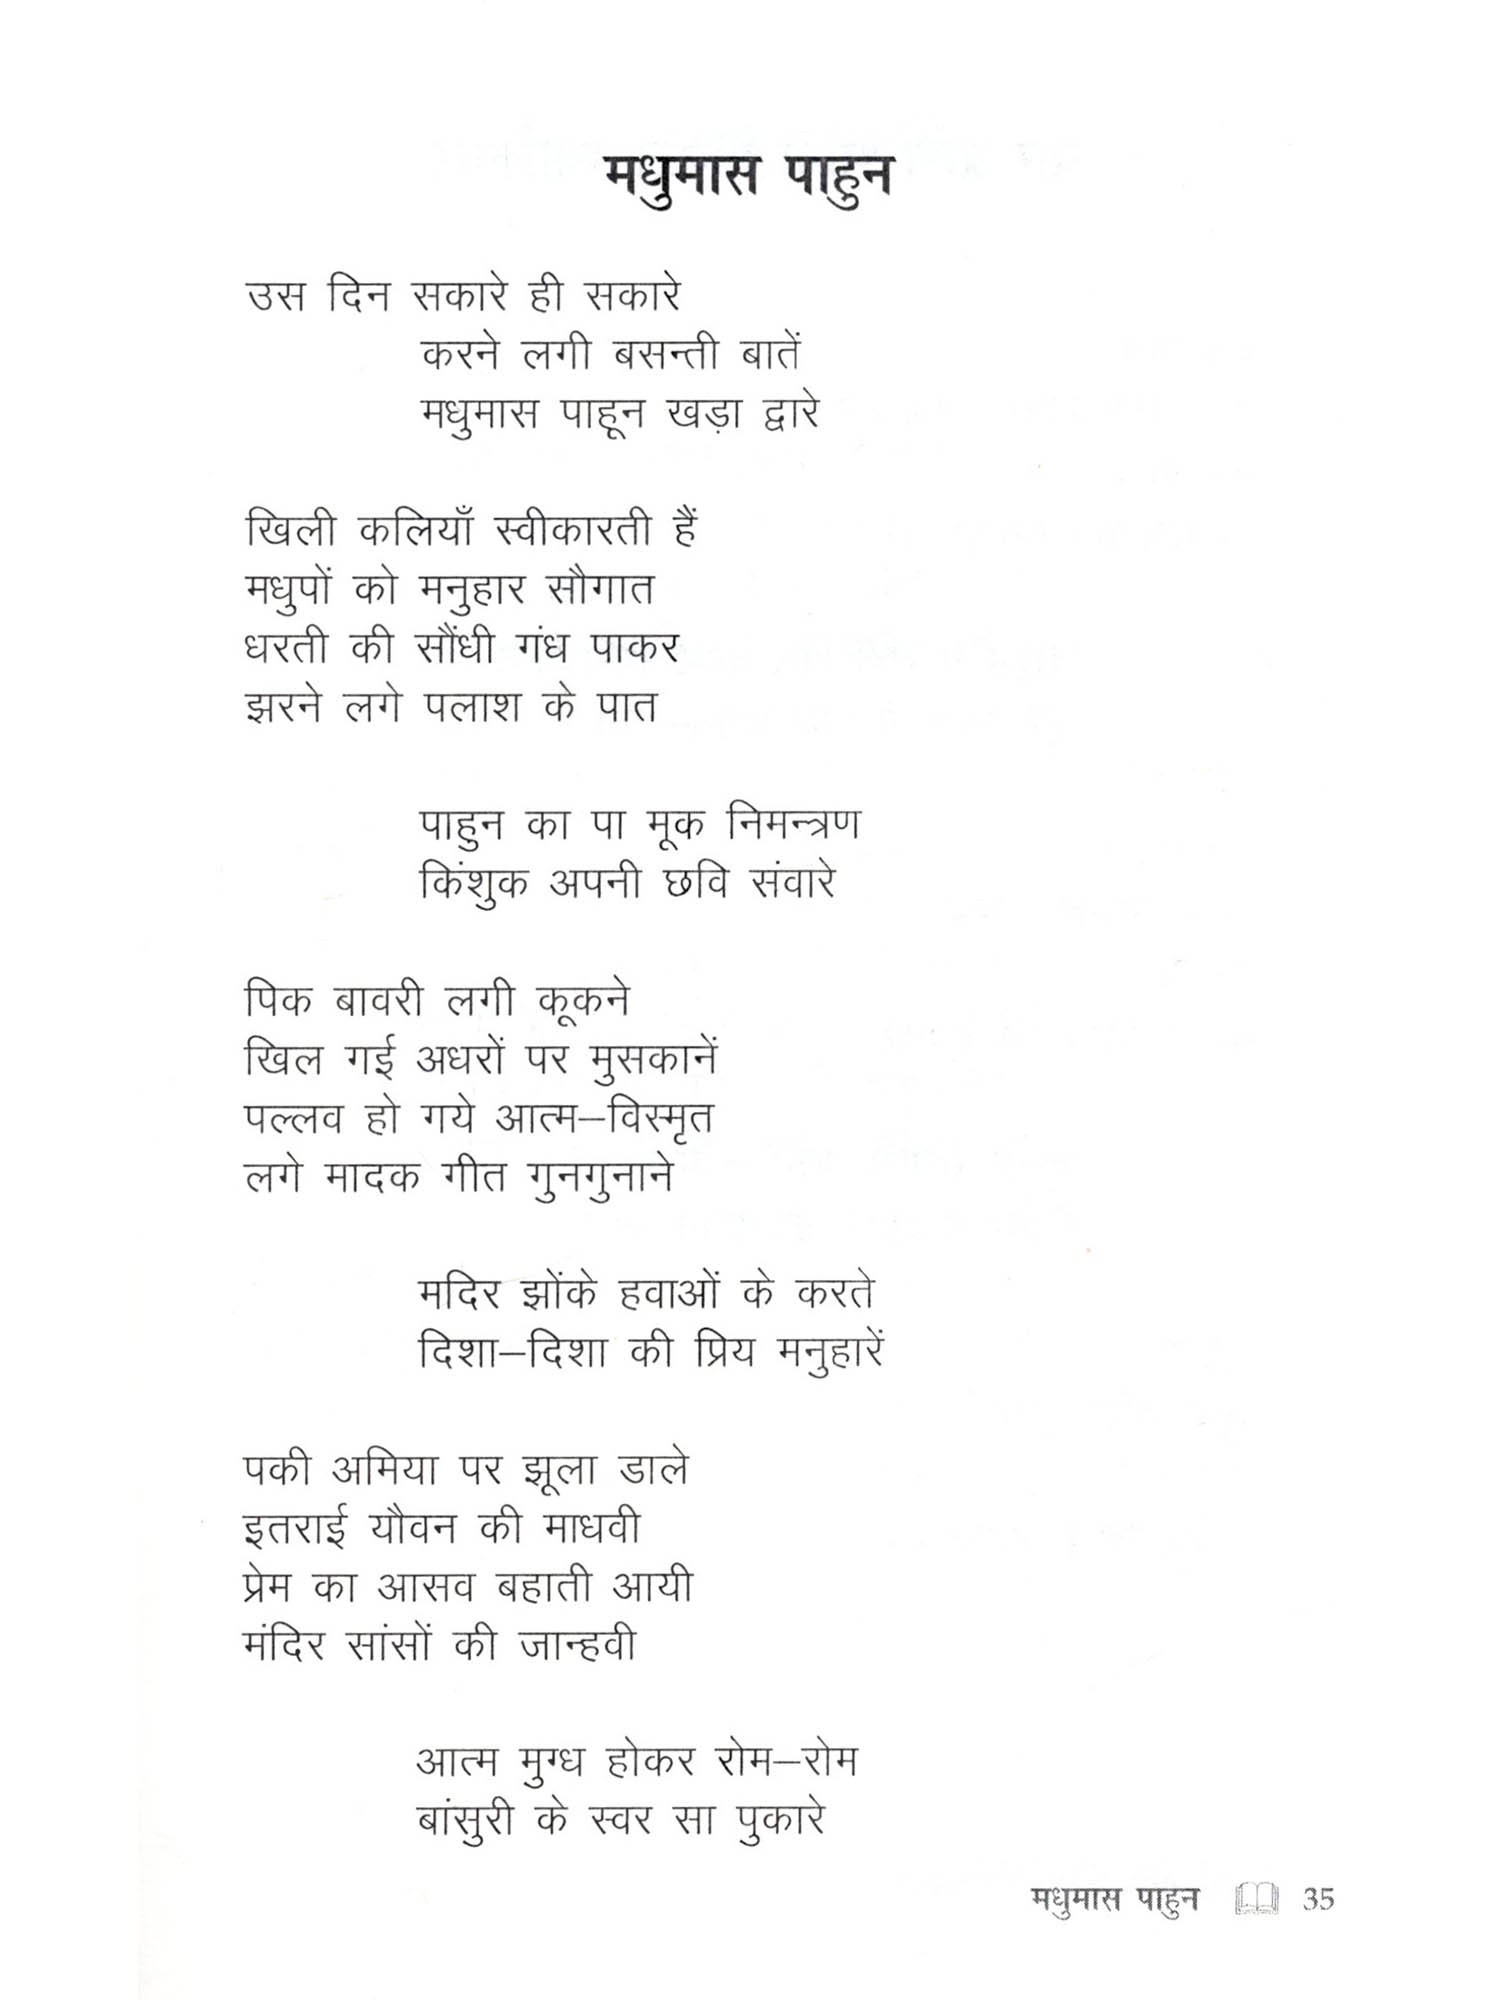 मधुमास पाहुन
उस दिन सकारे ही सकारे
करने लगी बसन्ती बातें
मधुमास पाहून खड़ा द्वारे
खिली कलियाँ स्वीकारती हैं
मधुपों को मनुहार सौगात
धरती की सौंधी गंध पाकर
झरने लगे पलाश के पात
पाहुन का पा मूक निमन्त्रण
किंशुक अपनी छवि संवारे
पिक बावरी लगी कूकने
खिल गई अधरों पर मुसकानें
पल्लव हो गये आत्म–विस्मृत
लगे मादक गीत गुनगुनाने
मदिर झोंके हवाओं के करते
दिशा–दिशा की प्रिय मनुहारें
पकी अमिया पर झूला डाले
इतराई यौवन की माधवी
प्रेम का आसव बहाती आयी
मंदिर सांसों की जान्हवी
आत्म मुग्ध होकर रोम–रोम
बांसुरी के स्वर सा पुकारे
मधुमास पाहुन 35